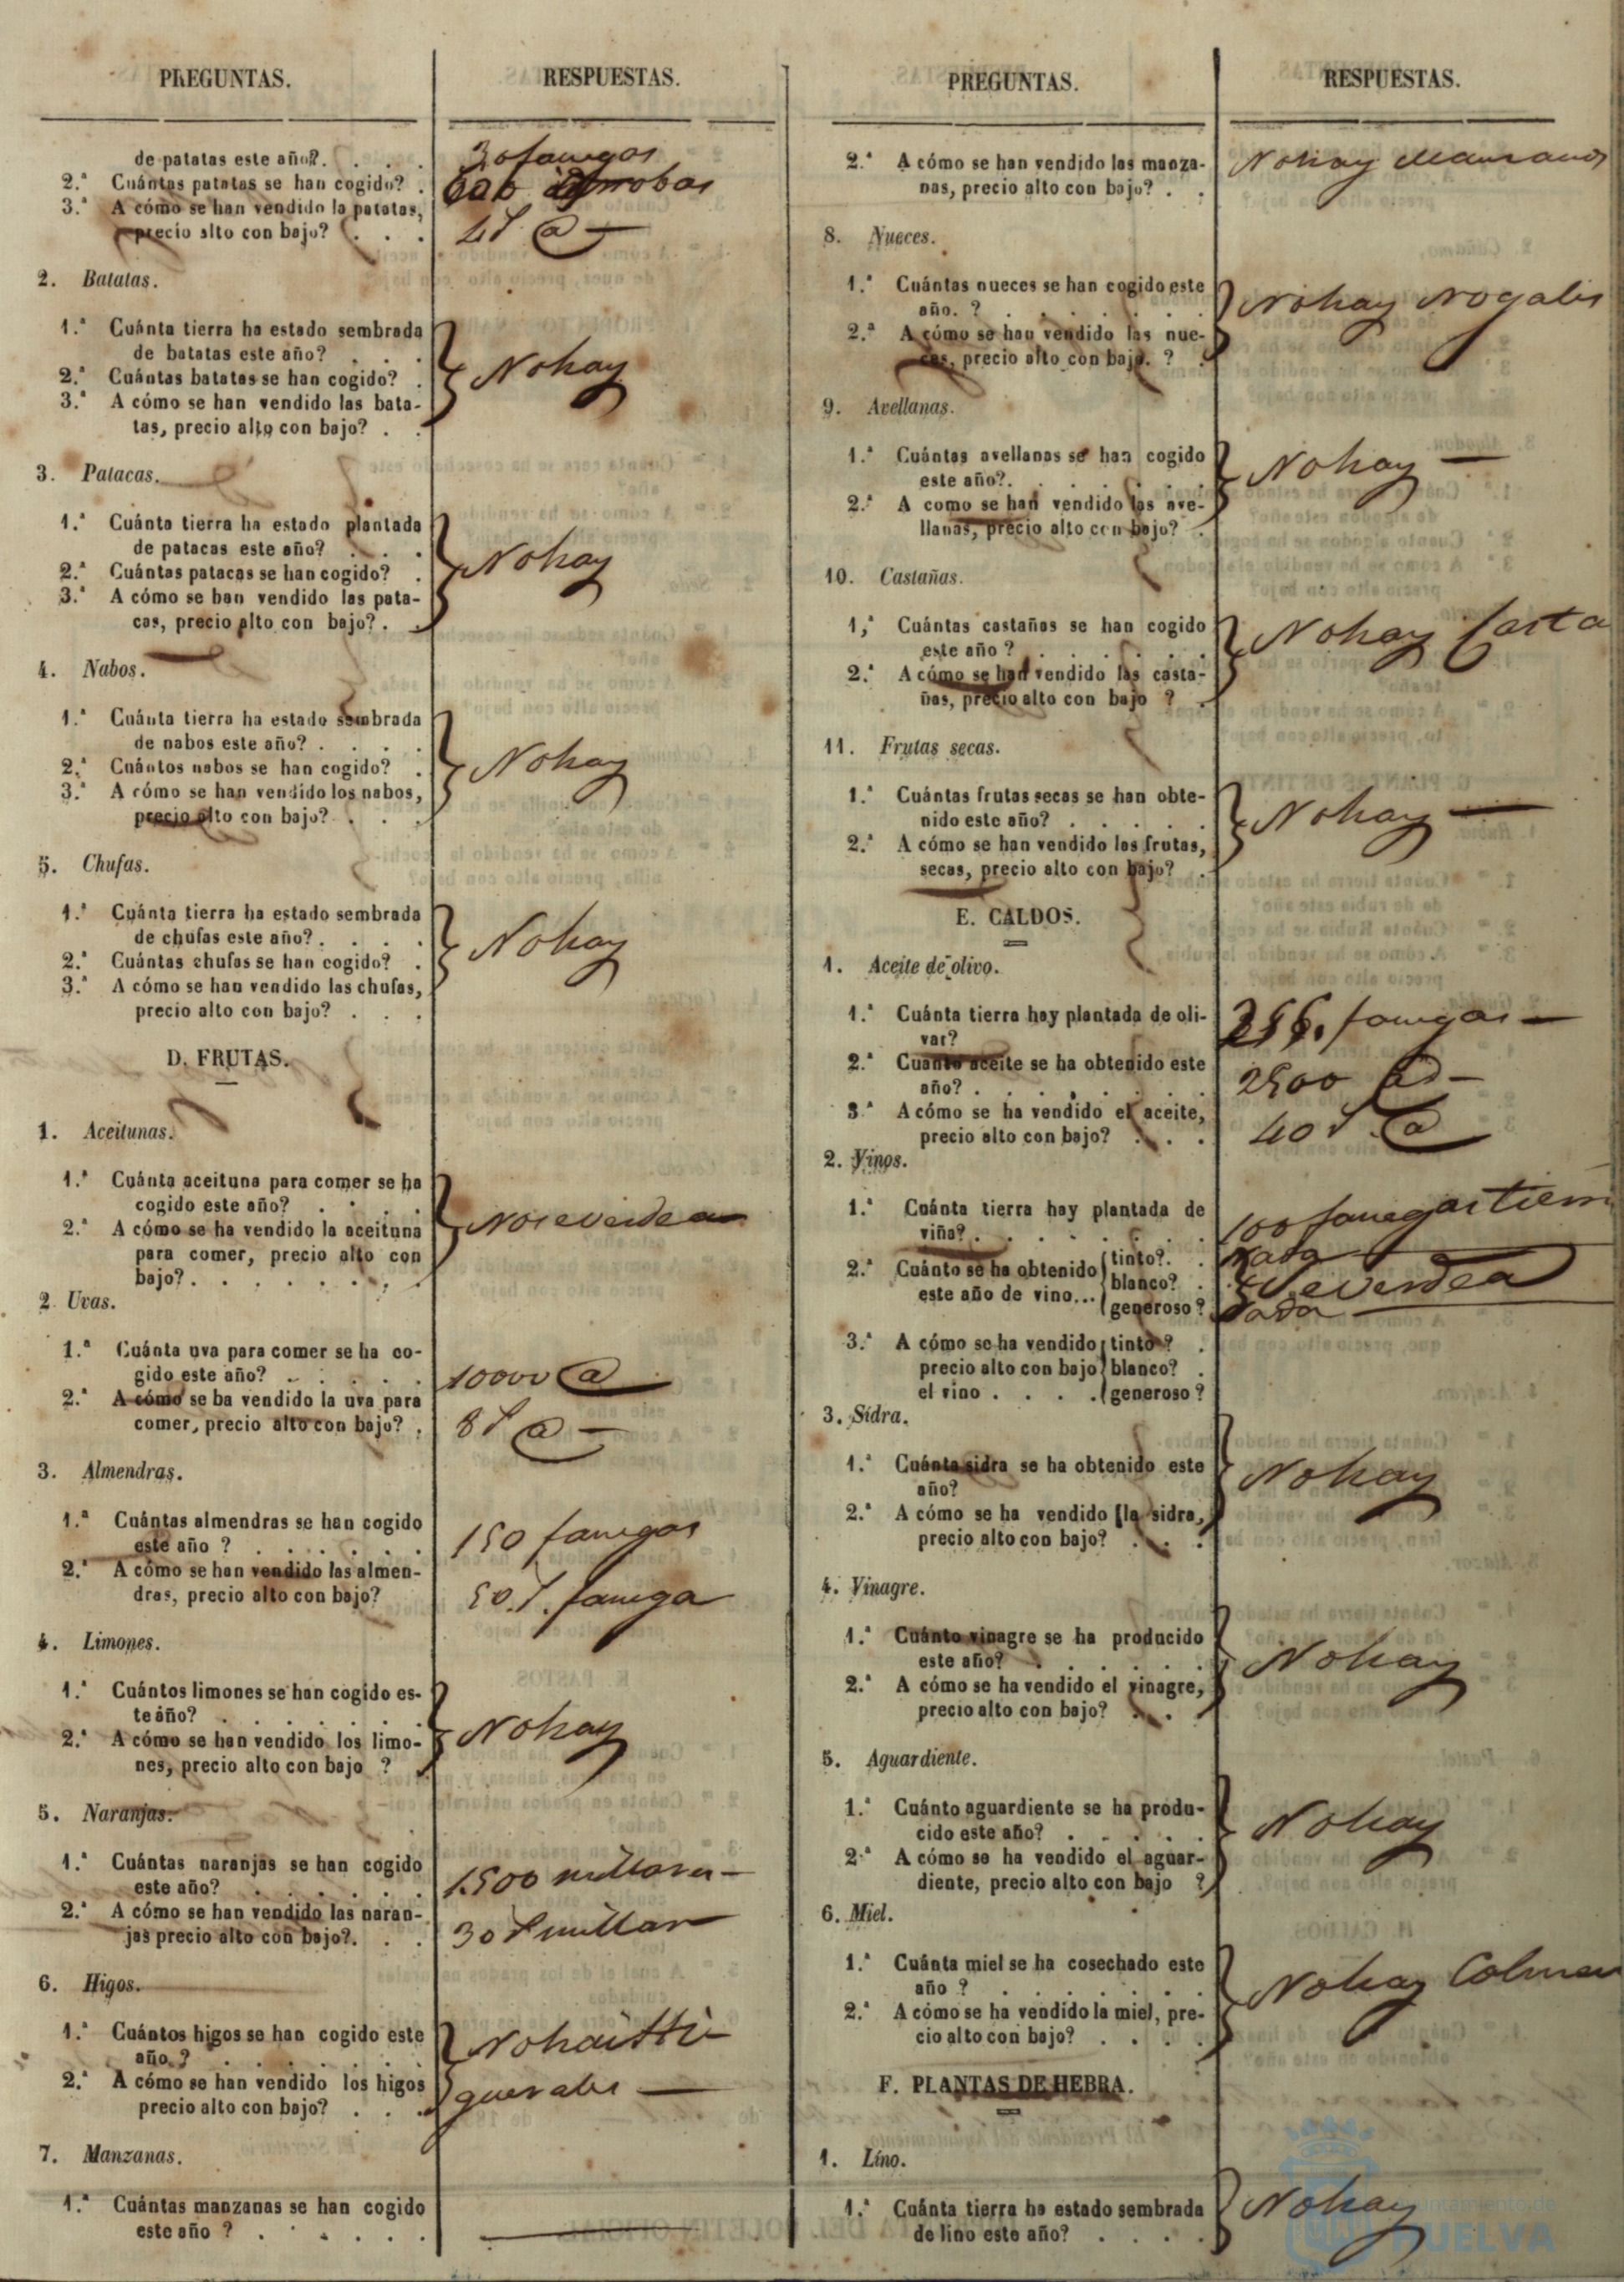 PREGUNTAS.
RESPUESTAS.
de patatas este año?. . . .
30 fanegas
2.ª Cuántas patatas se han cogido? .
600 arrobas
3.ª A cómo se han vendido la patatas,
precio alto con bajo? . . .
2. Batatas.
1.ª Cuánta tierra ha estado sembrada
de batatas este año? . . .
2.ª Cuántas batatas se han cogido? .
No hay
3.ª A cómo se han vendido las bata-
tas, precio alto con bajo? . .
3. Patacas.
1.ª Cuánta tierra ha estado plantada
de patacas este año? . . .
2.ª Cuántas patacas se han cogido? .
No hay
3.ª A cómo se han vendido las pata-
cas, precio alto con bajo? . .
4. Nabos.
1.ª Cuánta tierra ha estado sembrada
de nabos este año? . . . .
2.ª Cuántos nabos se han cogido? .
No hay
3.ª A cómo se han vendido los nabos,
precio alto con bajo? . . .
5. Chufas.
1.ª Cuánta tierra ha estado sembrada
de chufas este año? . . . .
2.ª Cuántas chufas se han cogido? .
No hay
3.ª A cómo se han vendido las chufas,
precio alto con bajo? . . .
D. FRUTAS.
1. Aceitunas.
1.ª Cuánta aceituna para comer se ha
cogido este año? . . . .
2.ª A cómo se ha vendido la aceituna
No se verdea
para comer, precio alto con
bajo? . . . . . . . .
2. Uvas.
1.ª Cuánta uva para comer se ha co-
gido este año? . . . . .
10000 @
2.ª A cómo se ha vendido la uva para
comer, precio alto con bajo? .
3. Almendras.
1.ª Cuántas almendras se han cogido
este año ? . . . . . .
150 fanegas
2.ª A cómo se han vendido las almen-
dras, precio alto con bajo?
fanega
4. Limones.
1.ª Cuántos limones se han cogido es-
te año? . . . . . .
2.ª A cómo se han vendido los limo-
No hay
nes, precio alto con bajo ?
5. Naranjas.
1.ª Cuántas naranjas se han cogido
este año? . . . . . .
1.500 millares
2.ª A cómo se han vendido las naran-
jas precio alto con bajo?. . .
millar
6. Higos.
1.ª Cuántos higos se han cogido este
año ? . . . . . .
2.ª A cómo se han vendido los higos
precio alto con bajo? . . .
7. Manzanas.
1.ª Cuántas manzanas se han cogido
este año ? . . . . . .
PREGUNTAS.
RESPUESTAS.
2.ª A cómo se han vendido las manza-
No hay Manzanos
nas, precio alto con bajo? . .
8. Nueces.
1.ª Cuántas nueces se han cogido este
año. ? . . . . . .
No hay Nogales
2.ª A cómo se han vendido las nue-
ces, precio alto con bajo. ? .
9. Avellanas.
1.ª Cuántas avellanas se han cogido
este año?. . . . . . .
No hay
2.ª A como se han vendido las ave-
llanas, precio alto con bajo? .
10. Castañas.
1,ª Cuántas castañas se han cogido
este año ? . . . . . .
No hay Casta
2.ª A cómo se han vendido las casta-
ñas, precio alto con bajo ? .
11. Frutas secas.
1.ª Cuántas frutas secas se han obte-
nido este año? . . . . .
No hay
2.ª A cómo se han vendido las frutas,
secas, precio alto con bajo? .
E. CALDOS.
1. Aceite de olivo.
1.ª Cuánta tierra hay plantada de oli-
var?
fanegas
2.ª Cuanto aceite se ha obtenido este
año? . . . . . . .
2500
3.ª A cómo se ha vendido el aceite,
precio alto con bajo? . . .
2. Vinos.
1.ª Cuánta tierra hay plantada de
viña? . . . . . . .
100 fanegas tierra
2.ª Cuánto se ha obtenido tinto? .
Nada
este año de vino... blanco? .
Se verdea
generoso?
Nada
3.ª A cómo se ha vendido tinto ? .
precio alto con bajo blanco? .
el vino . . . . generoso ?
3. Sidra.
1.ª Cuánta sidra se ha obtenido este
año?
No hay
2.ª A cómo se ha vendido la sidra,
precio alto con bajo? . . .
4. Vinagre.
1.ª Cuánto vinagre se ha producido
este año? . . . . . .
No hay
2.ª A cómo se ha vendido el vinagre,
precio alto con bajo? . . .
5. Aguardiente.
1.ª Cuánto aguardiente se ha produ-
cido este año? . . . . .
No hay
2.ª A cómo se ha vendido el aguar-
diente, precio alto con bajo ?
6. Miel.
1.ª Cuánta miel se ha cosechado este
año ? . . . . . .
No hay Colmen
2.ª A cómo se ha vendido la miel, pre-
cio alto con bajo? . . . .
F. PLANTAS DE HEBRA.
1. Líno.
1.ª Cuánta tierra ha estado sembrada
No hay
de lino este año? . . . .
Ayuntamiento de
HUELVA